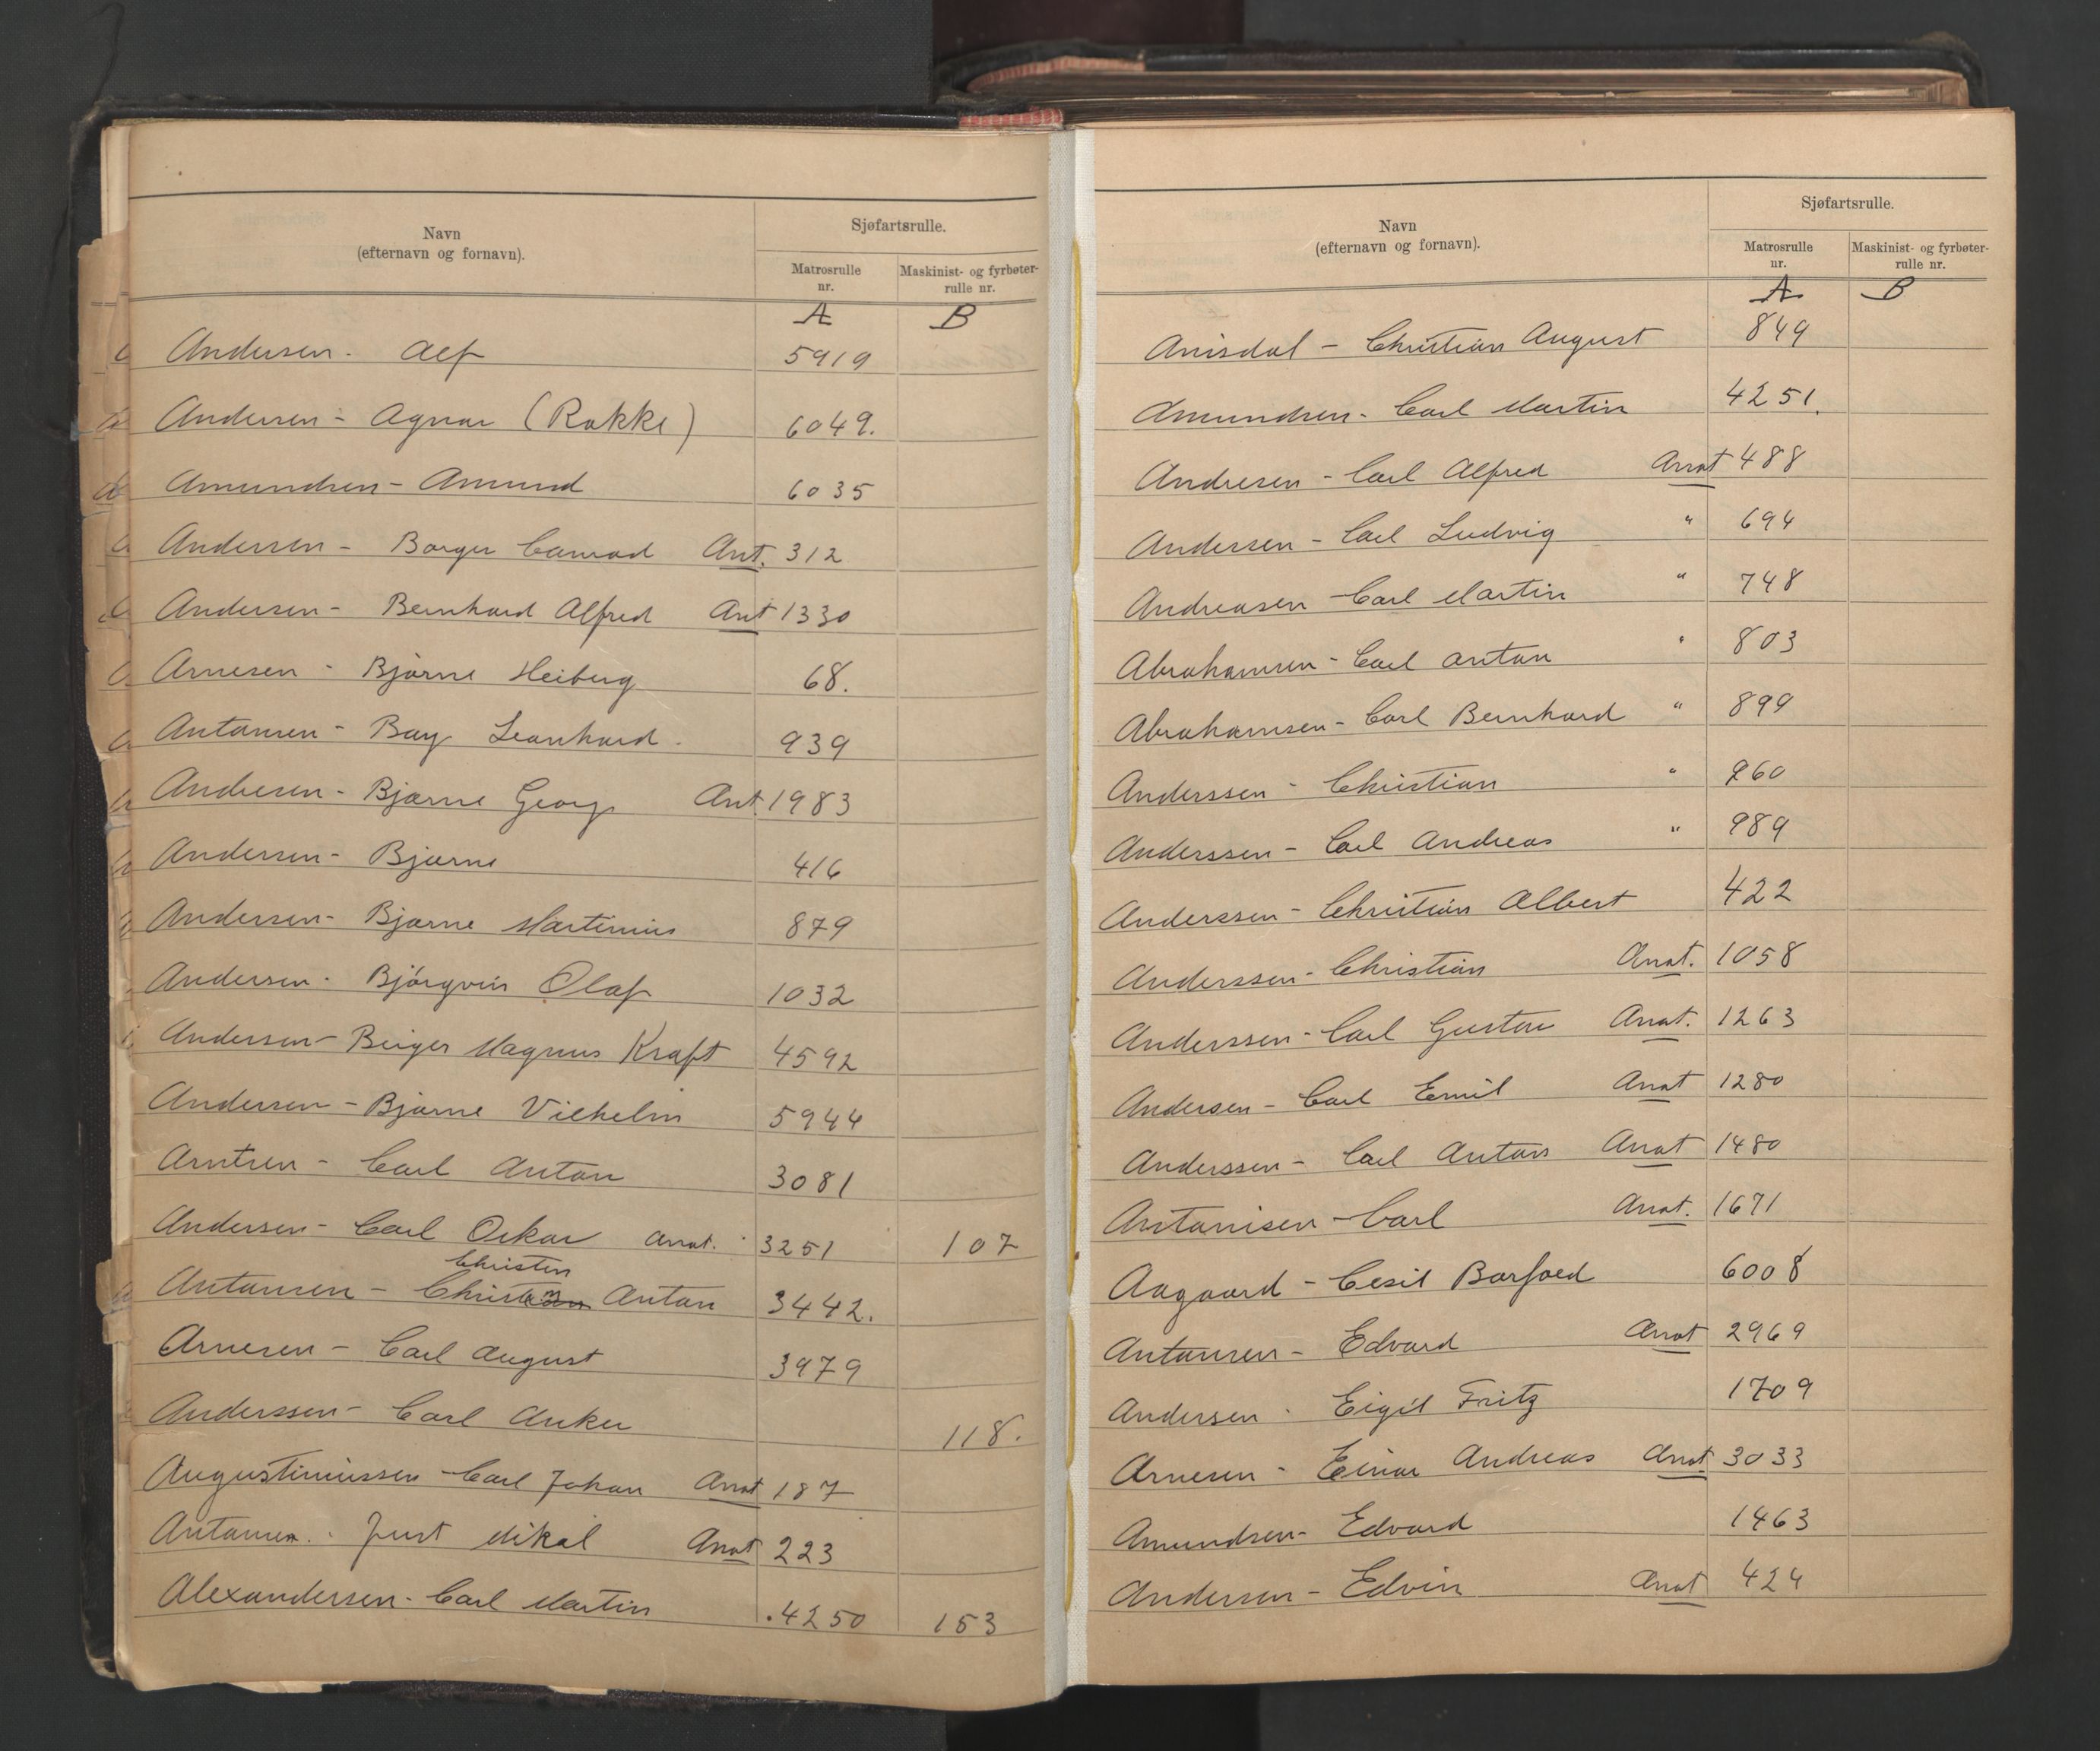 Navn
(efternavn og fornavn).
Sjøfartsrulle.
Matrosrulle
nr.
Maskinist- og fyrbøter-
rulle nr.
A B
Andersen - Alf 5919
Andersen - Agnar (Rakke) 6049.
Amundsen - Amund 6035
Andersen - Borger Conrad Ant. 312
Andersen - Bernhard Alfred Ant 1330
Arnesen - Bjarne Heiberg 68.
Antonsen - Bay Leonhard. 939
Andresen - Bjarne Georg Ant. 1983
Andersen - Bjarne 416
Andersen - Bjarne Martinius 879
Andersen - Bjørgvin Olaf 1032
Andersen - Birger Magnus Kraft 4592
Andersen - Bjarne Vilhelm 5944
Arntsen - Carl Anton 3081
Andersen - Carl Oskar Anot. 3251 107
Christen
Antonsen - Christian Anton 3442.
Arnesen - Carl August 3979
Anderssen - Carl Anker 118.
Augustiniussen - Carl Johan Anot 187
Antonsen - Just Mikal Anot 223
Alexandersen - Carl Martin .4250 153
Navn
(efternavn og fornavn).
Sjøfartsrulle.
Matrosrulle
nr.
Maskinist- og fyrbøter-
rulle nr.
A B
Anisdal - Christian August 849
Amundsen - Carl Martin 4251.
Andresen - Carl Alfred Anot 488
Andersen - Carl Ludvig " 694
Andreasen - Carl Martin " 748
Abrahamsen - Carl Anton " 803
Abrahamsen - Carl Bernhard " 899
Anderssen - Christian " 960
Anderssen - Carl Andreas " 989
Anderssen - Christian Albert 422
Anderssen - Christian Anot. 1058
Anderssen - Carl Gustav Anot. 1263
Andersen - Carl Emil Anot 1280
Anderssen - Carl Anton Anot 1480
Antonisen - Carl Anot. 1671
Aagaard - Cesil Barfoed 6008
Antonsen - Edvard Anot 2969
Andersen - Eigil Fritz 1709
Arnesen - Einar Andreas Anot. 3033
Amundsen - Edvard 1463
Andersen - Edvin Anot 424